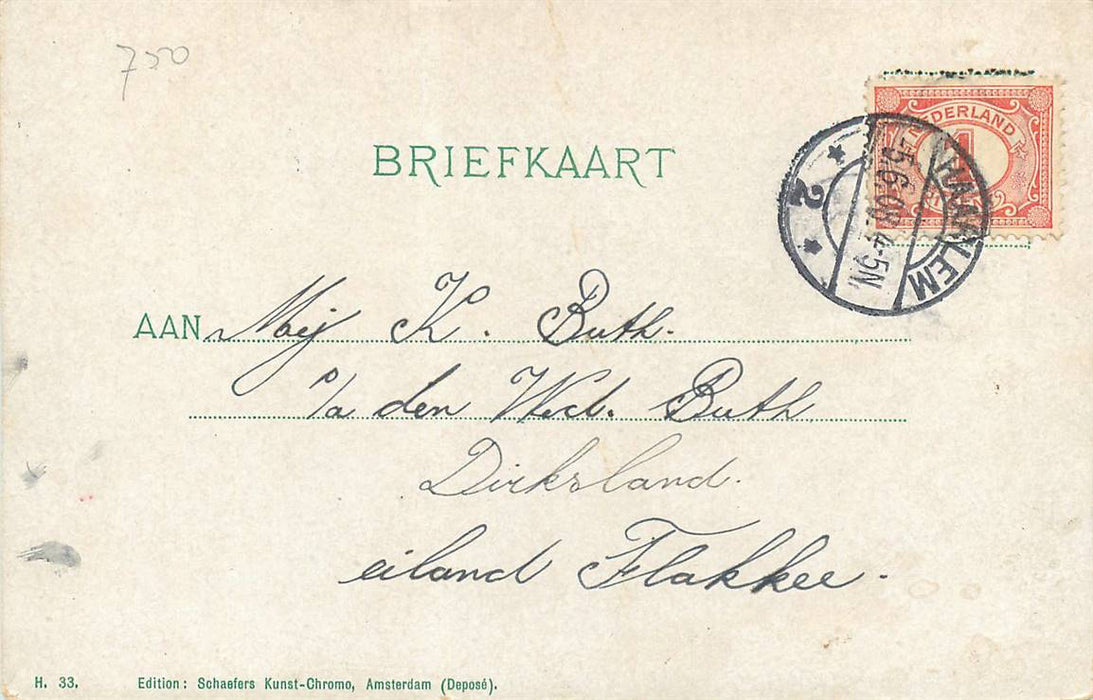 750
NEDERLAND
1
HAARLEM
-5.6.08.4-5N.
2
BRIEFKAART
AAN Mej K. Buth.
p/a den Wed. Buth
Dirksland.
eiland Flakkee.
H. 33. Edition: Schaefers Kunst-Chromo, Amsterdam (Deposé).